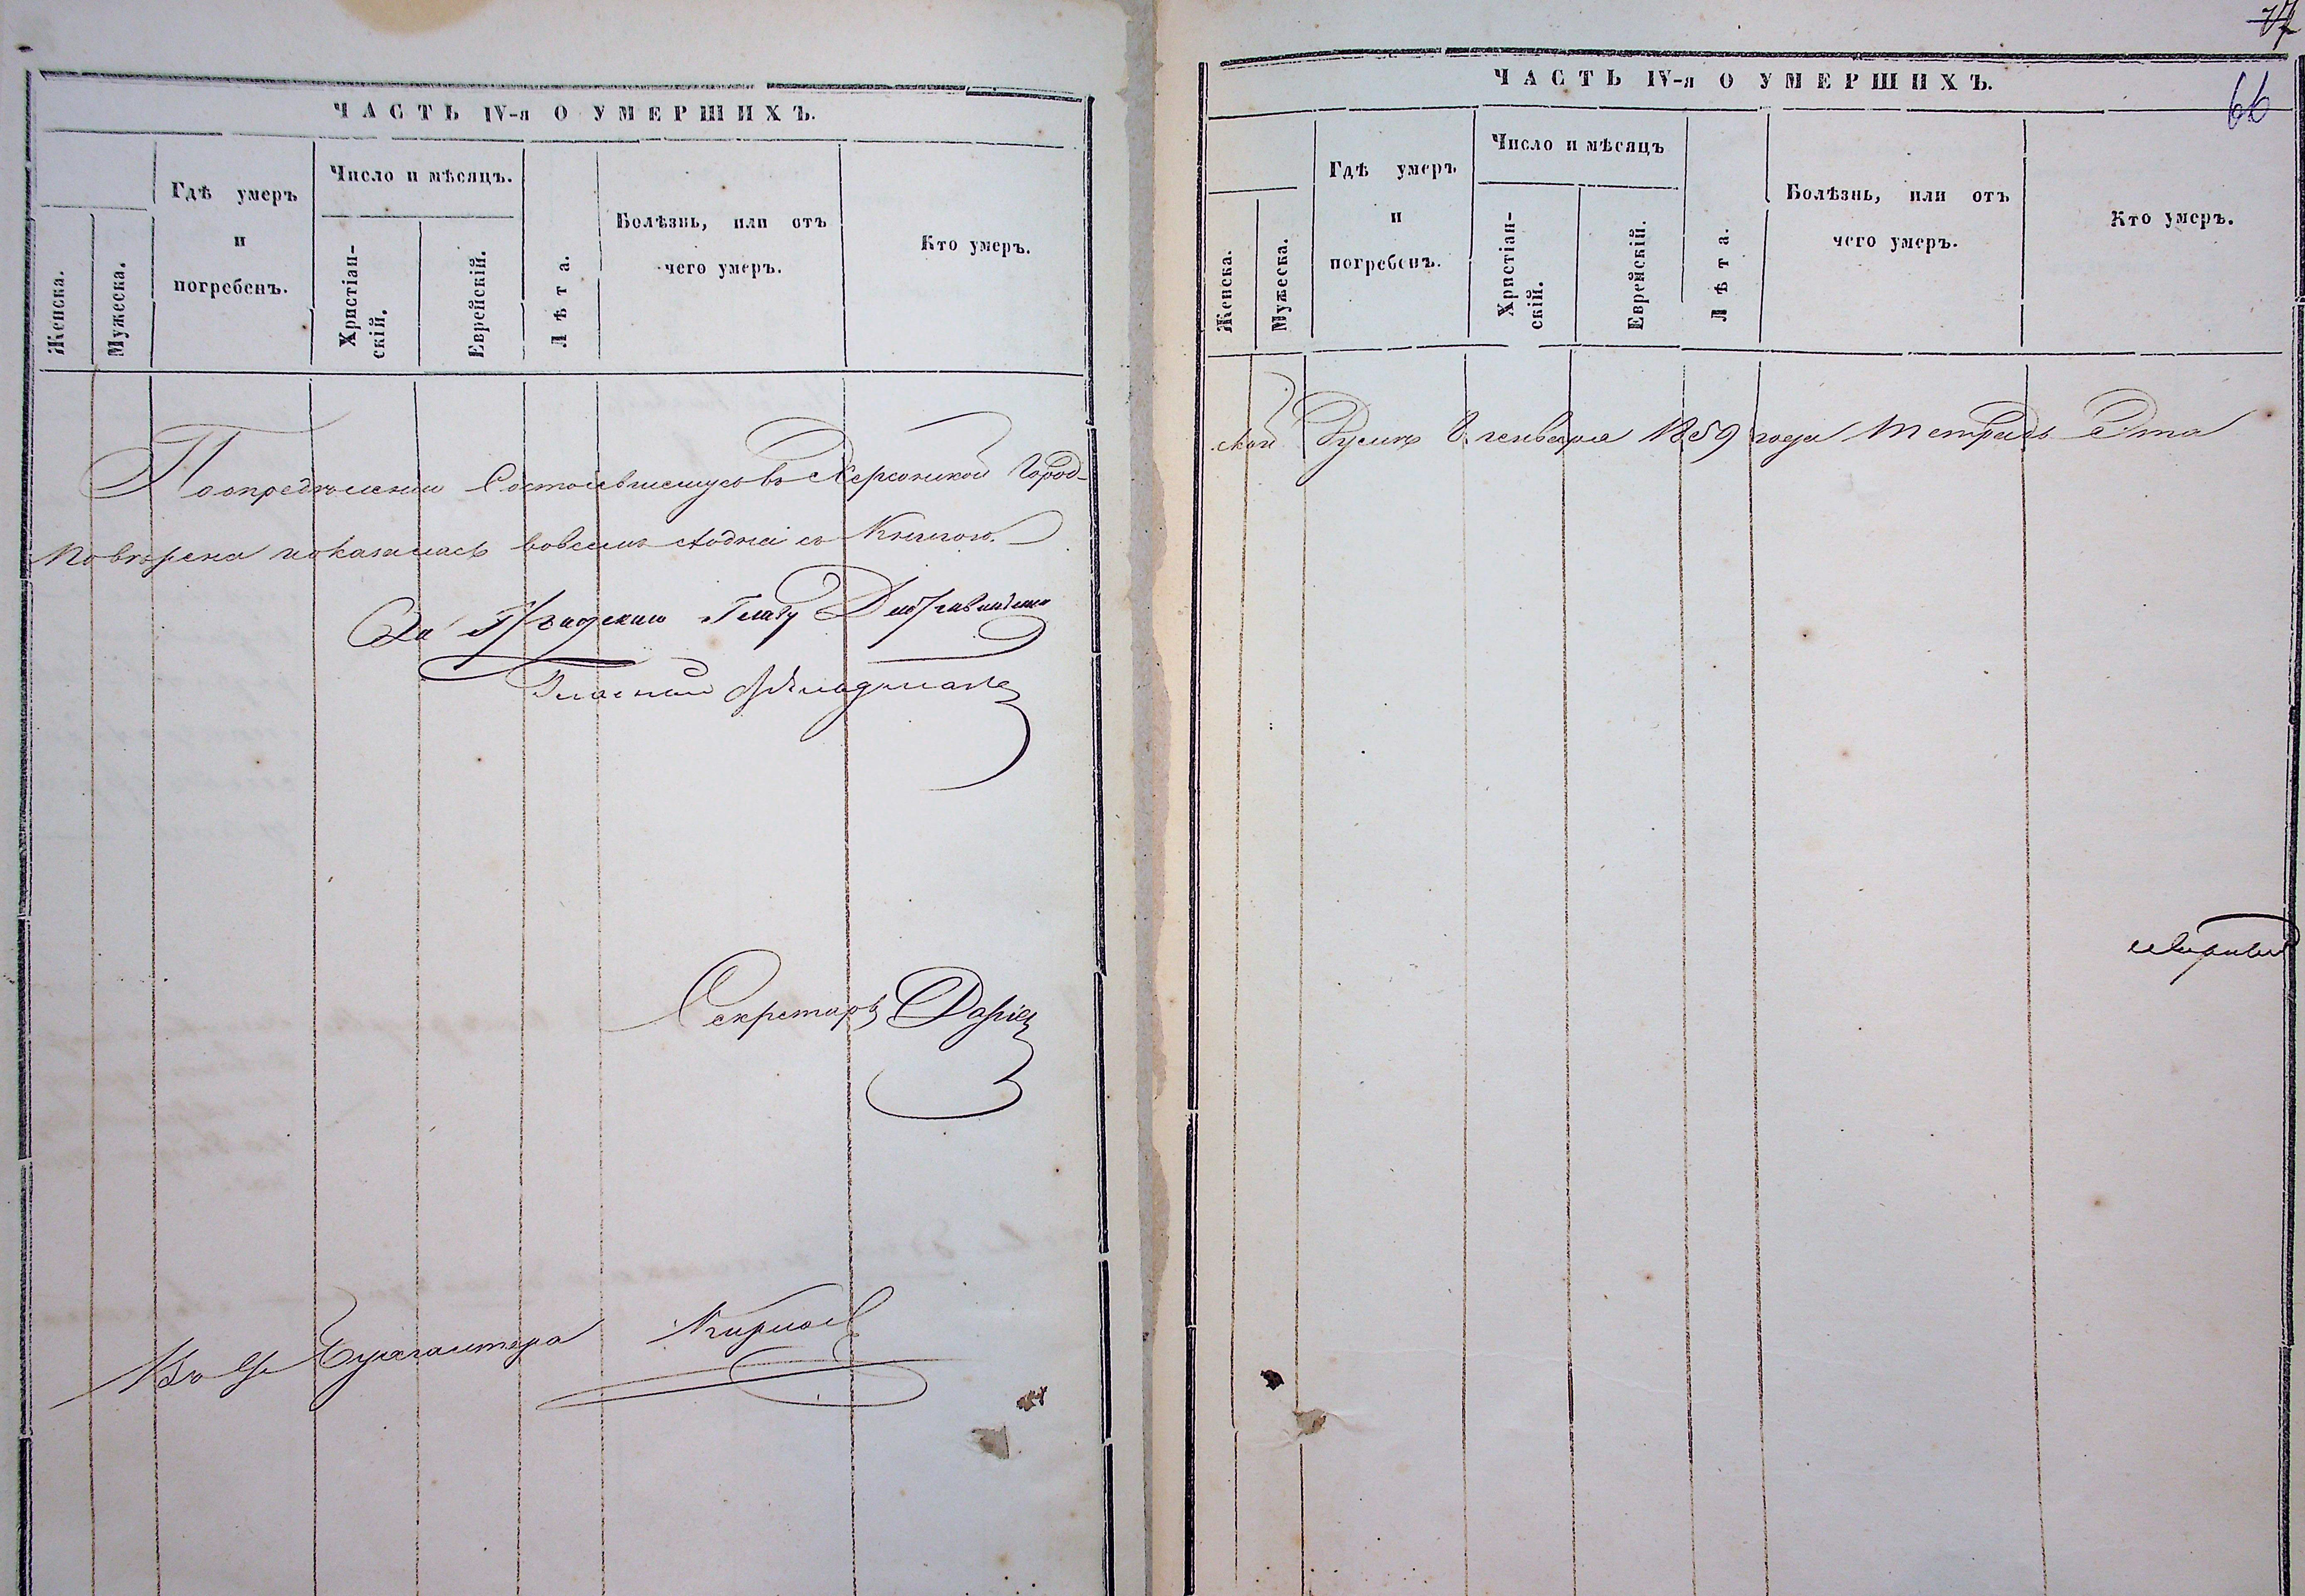 ЧАСТЬ IV-я О УМЕРШИХЪ.
Женска.
Мужеска.
Гдѣ умеръ
и
погребенъ.
Число и мѣсяцъ.
Христіан-
скій.
Еврейскій.
Лѣта.
Болѣзнь, или отъ
чего умеръ.
Кто умеръ.
По определению Состоявшемуся въ Херсонской Город-
поверена оказалась вовсемъ сходна съ Книгою.
За Градскаго Главу
Гласный
Секретарь
Бухгалтера
77
ЧАСТЬ IV-я О УМЕРШИХЪ.
66
Женска.
Мужеска.
Гдѣ умеръ
и
погребенъ.
Число и мѣсяцъ
Христіан-
скій.
Еврейскій.
Лѣта.
Болѣзнь, или отъ
чего умеръ.
Кто умеръ.
ской Думѣ 8 генваря 1859 года тетрадь Эта